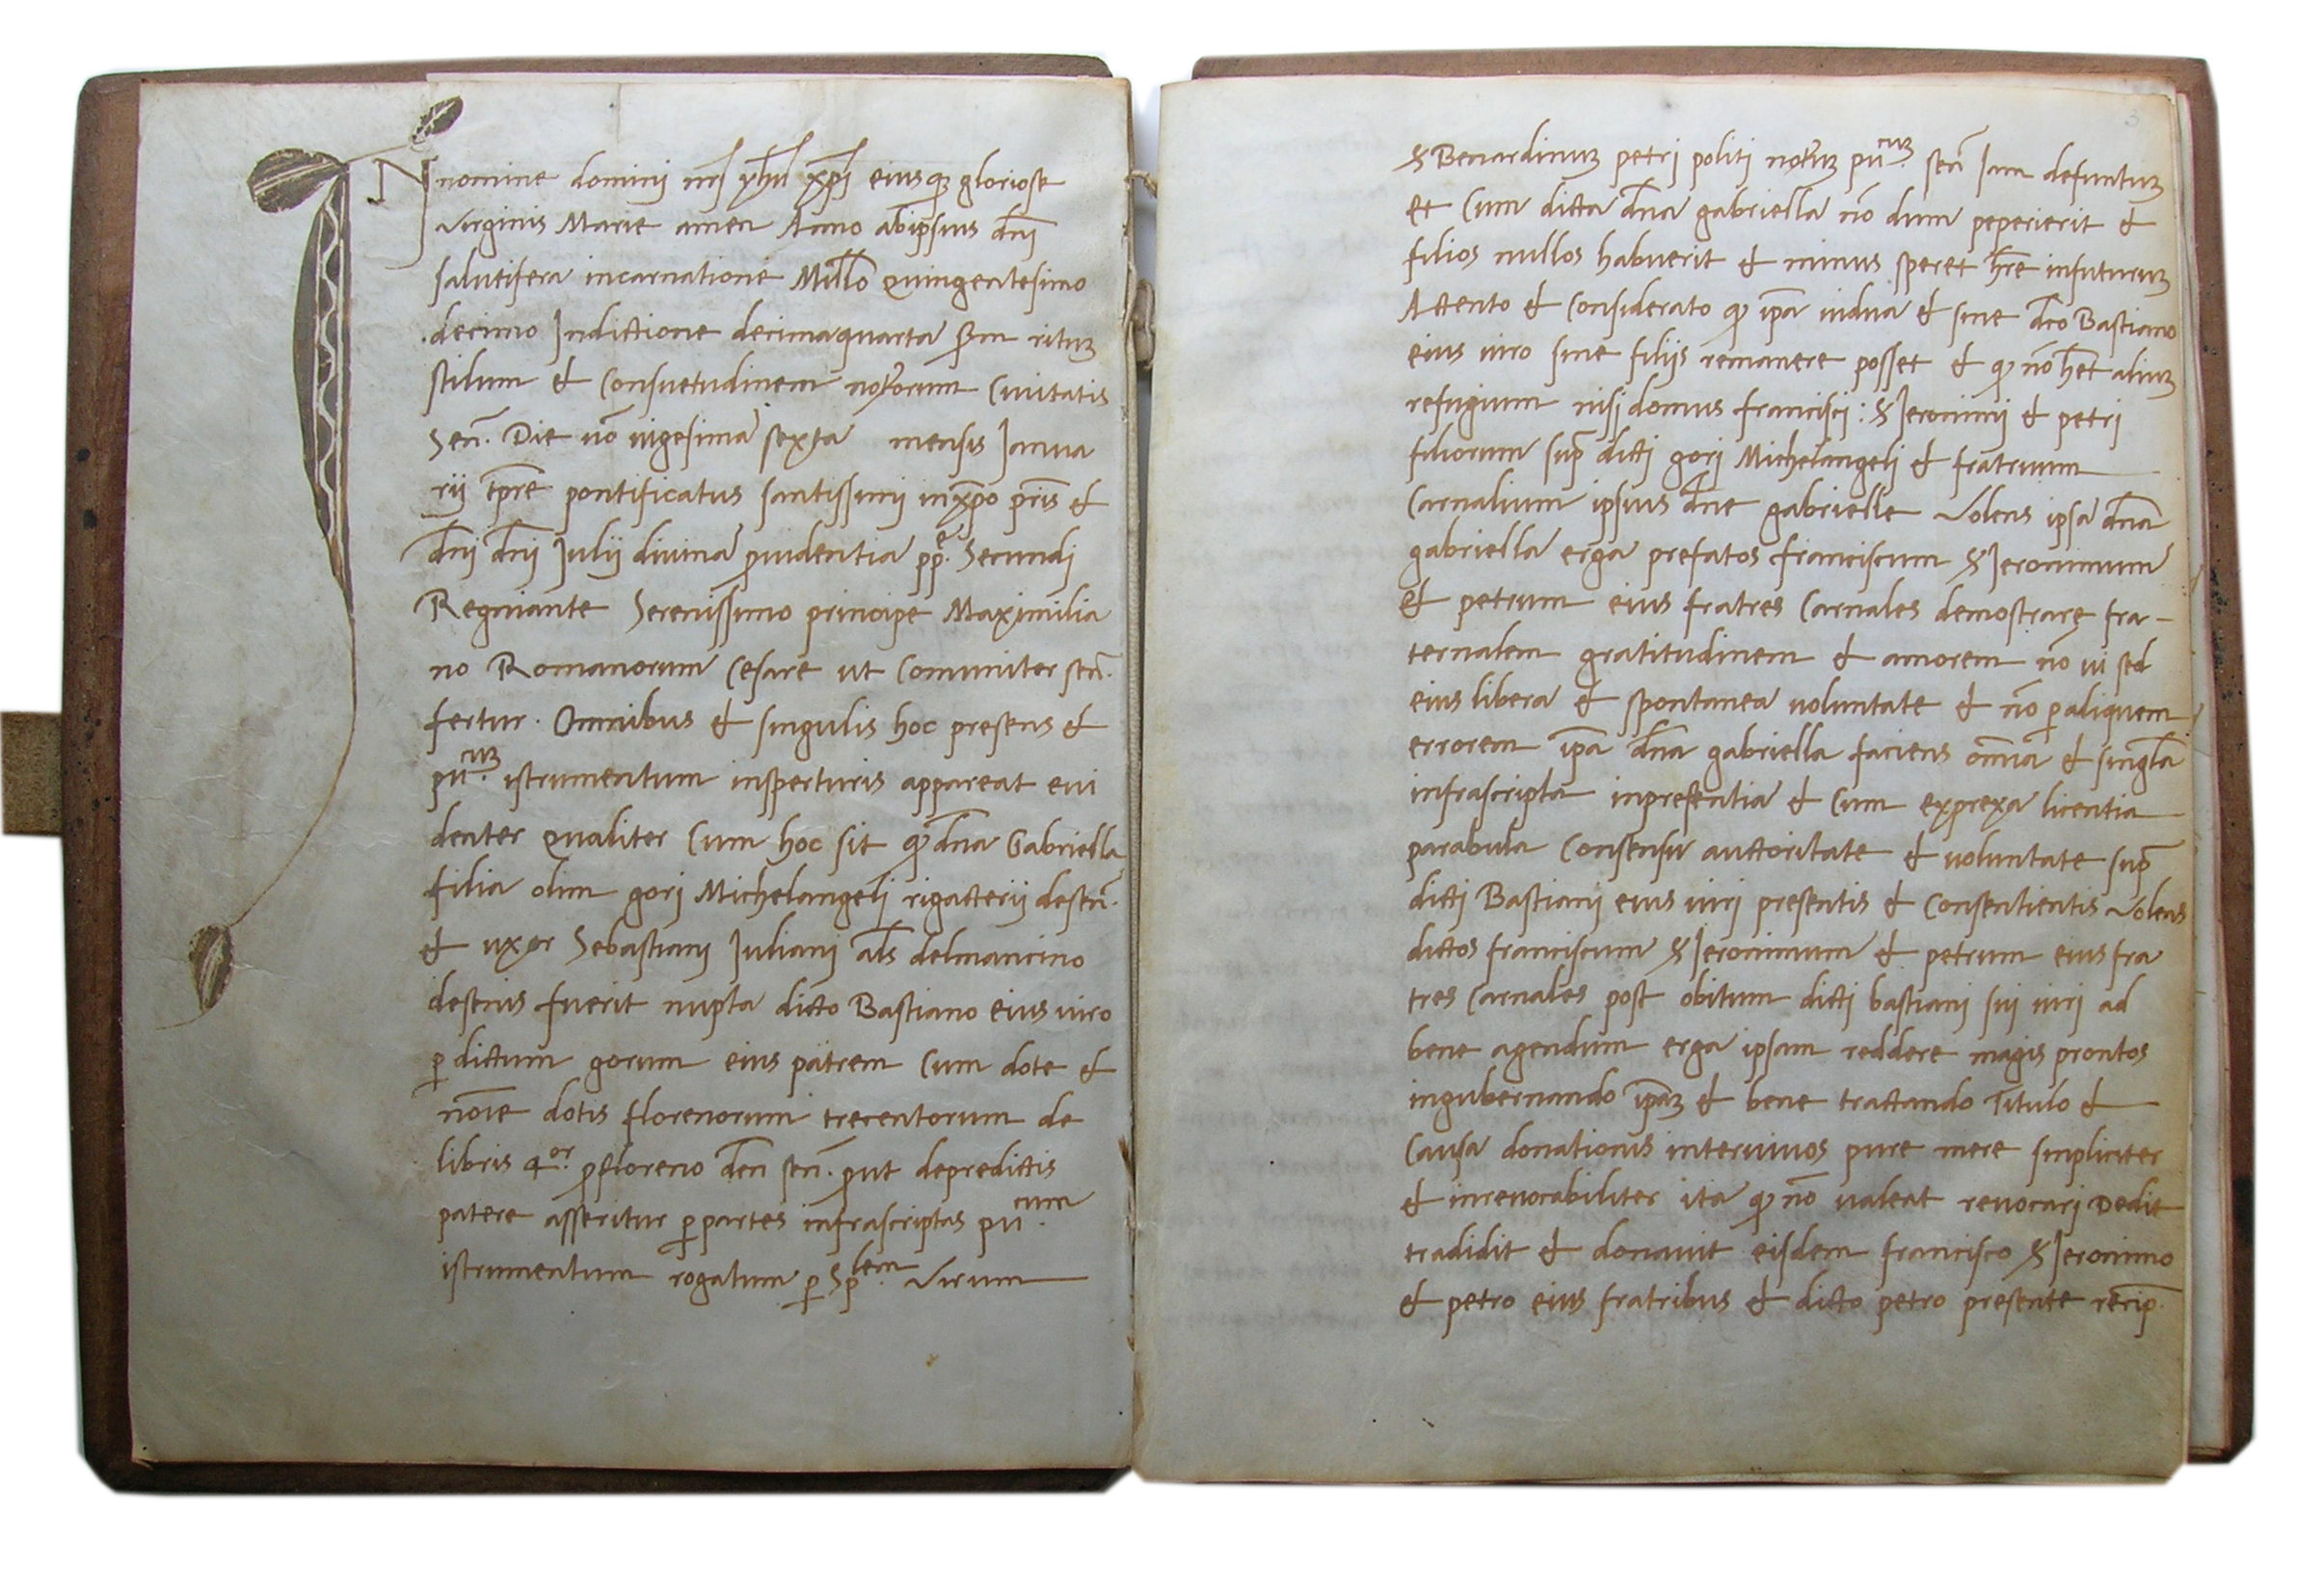 IN nomine domini nrı yhu xpi eiusq gloriose
Virginis Marie amen Anno abipsius dni
salutifera incarnatione Millo Quingentesimo
decimo Indictione decimaquarta sm rituz
stilum & Consuetudinem notorum Civitatis
Sen. Die vo vigesima sexta mensis Janua
rii tpre pontificatus santissimi inxpo pris &
dni dni Julii divina pvidentia ppe. Secundi
Regniante Serenissimo principe Maximilia
no Romanorum Cesare ut Comuniter sen.
fertur. Omnibus & singulis hoc presens &
pucuz. istrumentum insperturis appareat evi
denter Qualiter Cum hoc sit q dna Gabriella
filia olim gorj Michelangelj rigatterii desen.
& uxor Sebastianj Juliani als delmancino
desenis fuerit nupta dicto Bastiano eius viro
p dictum gorum eius patrem Cum dote &
noie dotis florenorum trecentorum de
libris 4or. pfloreno den sen. put depredictis
patere asseritur p partes infrascriptas pucum.
istrumentum rogatum p Splem. Virum
3
S Benardinuz petri politi notuz pucuz. sen Jam defuntuz
et Cum dicta dna gabriella no dum peperierit &
filios nullos habuerit & minus speret hre infuturuz
Attento & Considerato q ipa vidua & sine dco Bastiano
eius viro sine filijs remanere posset & q no het aliuz
refugium nisi domus francisci: S Jeronimj & petri
filiorum sup dicti gorj Michelangelj & fratruum
Carnalium ipsius dne gabrielle Volens ipsa dna
gabriella erga prefatos franciscum S Jeronimum
& petrum eius fratres Carnales demostrare fra-
ternalem gratitudinem & amorem no vi sed
eius libera & spontanea voluntate & no p aliquem
errorem ipa dna gabriella faciens omia & singla
infrascripta inpresentia & Cum exprexa licentia
parabula Consensu auctoritate & voluntate sup
dicti Bastianj eius virj presentis & Consentientis Volens
dictos franciscum S Jeronimum & petrum eius fra
tres Carnales post obitum dicti bastianj sui virj ad
bene agendum erga ipsam reddere magis prontos
ingubernando ipaz & bene tractando Titulo &
Causa donationis intervivos pure mere simpliciter
& inrevocabiliter ita q no valeat revocarj Dedit
tradidit & donavit eisdem francisco S Jeronimo
& petro eius fratribus & dicto petro presente recip.